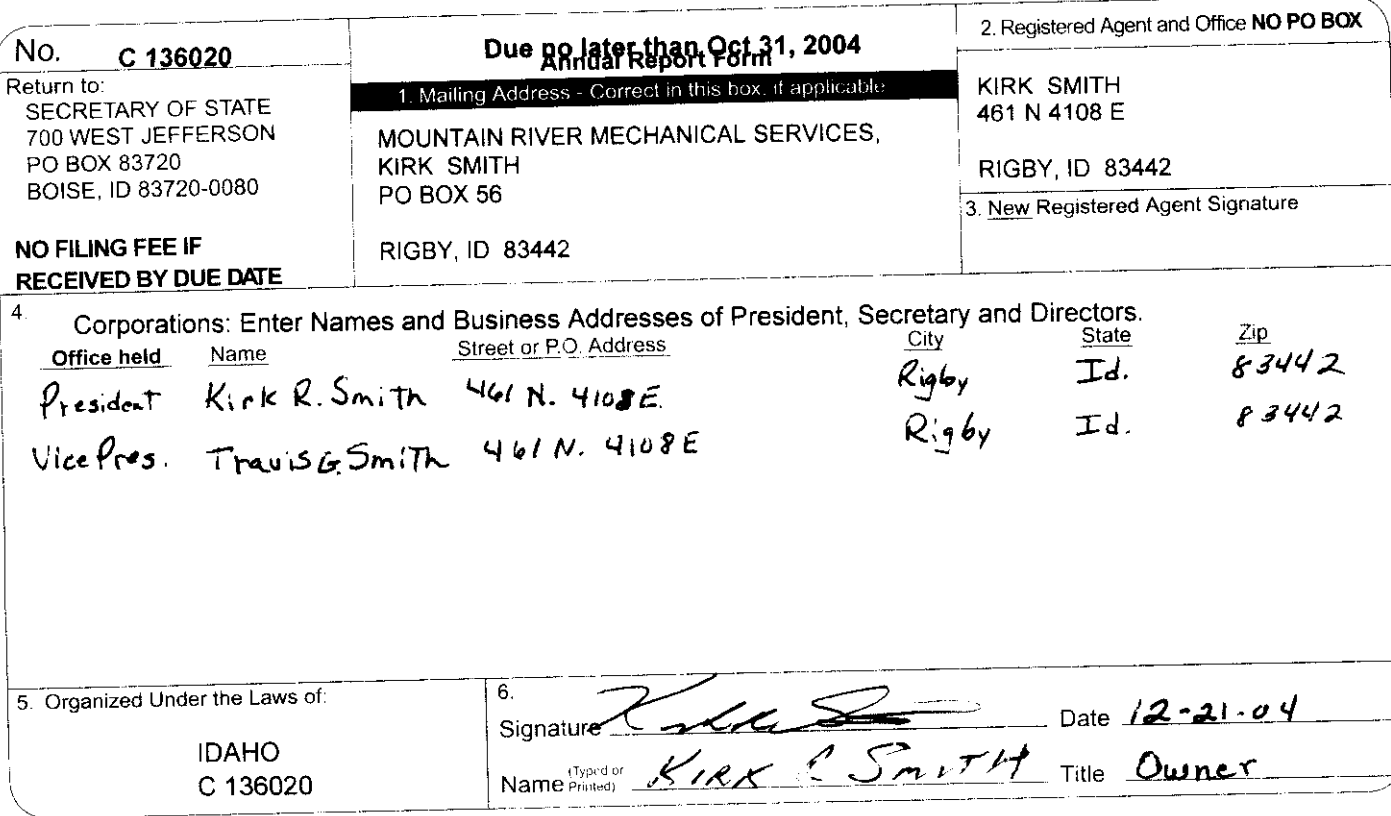 No. C 136020
Return to:
SECRETARY OF STATE
700 WEST JEFFERSON
PO BOX 83720
BOISE, ID 83720-0080
NO FILING FEE IF
RECEIVED BY DUE DATE
Due no later than Oct 31, 2004
Annual Report Form
1. Mailing Address - Correct in this box, if applicable
MOUNTAIN RIVER MECHANICAL SERVICES,
KIRK SMITH
PO BOX 56
RIGBY, ID 83442
2. Registered Agent and Office NO PO BOX
KIRK SMITH
461 N 4108 E
RIGBY, ID 83442
3. New Registered Agent Signature
4. Corporations: Enter Names and Business Addresses of President, Secretary and Directors.
Office held Name Street or P.O. Address City State Zip
President Kirk R. Smith 461 N. 4108 E. Rigby Id. 83442
Vice Pres. Travis G. Smith 461 N. 4108 E Rigby Id. 83442
5. Organized Under the Laws of:
IDAHO
C 136020
6.
Signature Date 12-21-04
Name (Typed or Printed) KIRK R SMITH Title Owner